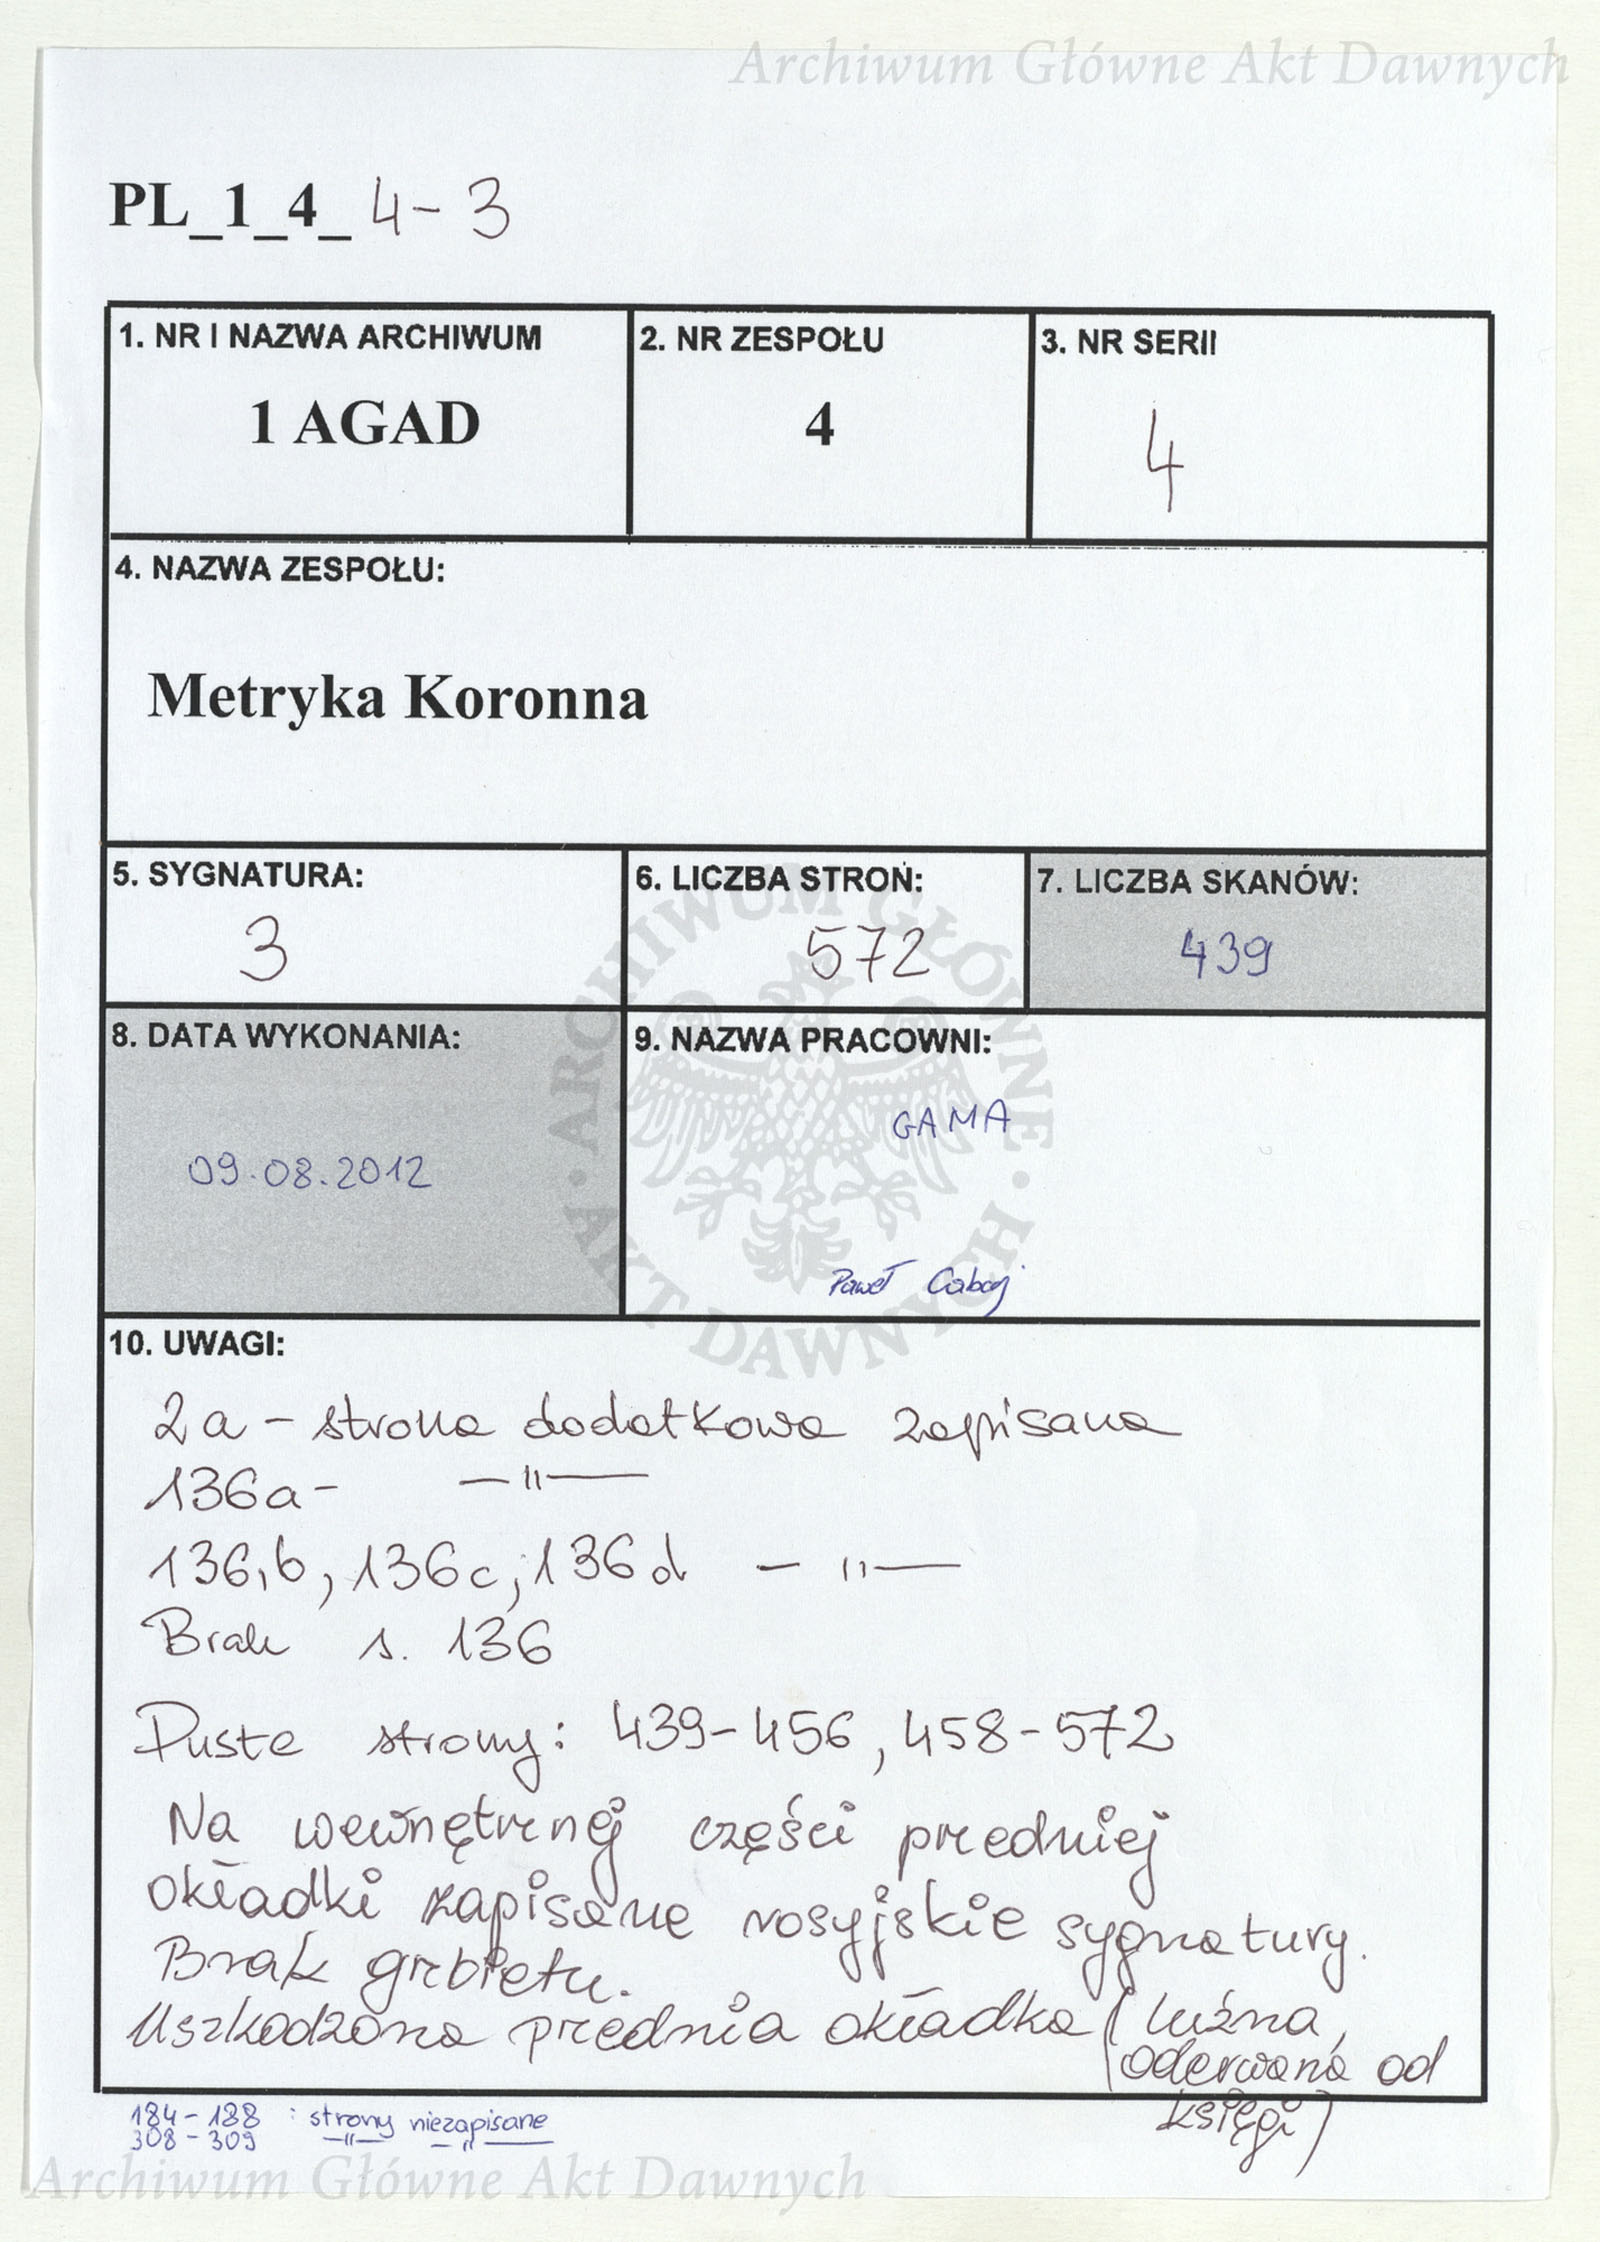 Archiwum Główne Akt Dawnych
PL_1_4_ 4-3
1. NR I NAZWA ARCHIWUM
1 AGAD
2. NR ZESPOŁU
4
3. NR SERII
4
4. NAZWA ZESPOŁU:
Metryka Koronna
5. SYGNATURA:
3
6. LICZBA STRON:
572
7. LICZBA SKANÓW:
439
8. DATA WYKONANIA:
09.08.2012
9. NAZWA PRACOWNI:
GAMA
Paweł
ARCHIWUM GŁÓWNE · AKT DAWNYCH ·
10. UWAGI:
2a - strona dodatkowa zapisana
136a- —"—
136,b, 136c, 136d — " —
Brak s. 136
Puste strony: 439-456, 458-572
Na wewnętrznej części przedniej
okładki zapisane rosyjskie sygnatury.
Brak grzbietu.
Uszkodzona przednia okładka (luźna,
oderwana od
księgi)
184-188 : strony niezapisane
308-309 —"— —"—
Archiwum Główne Akt Dawnych